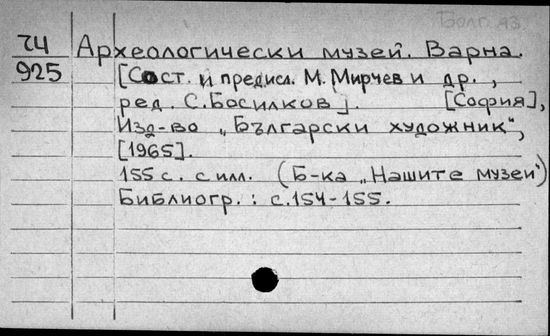 Болг. яз
24 Археологически музей. Варна.
925 [Сост. и предисл. М. Мирчев и др.,
ред. С. Босилков]. [София],
Изд-во „Български художник",
[1965].
155 с. с илл. (Б-ка „Нашите музеи")
Библиогр.: с.154-155.